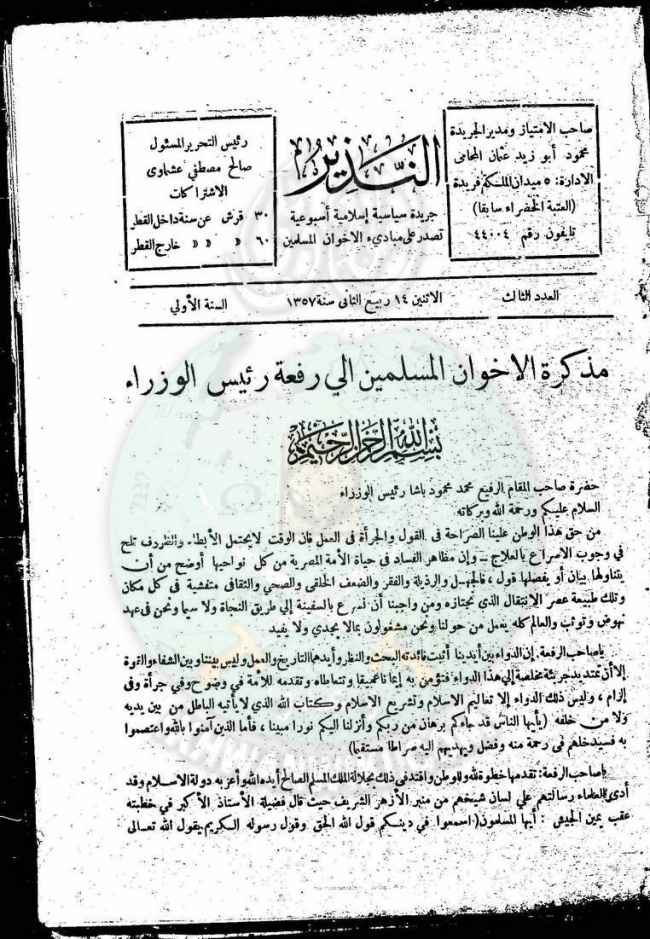 صاحب الامتياز ومدير الجريدة
محمود أبو زيد عثمان المحامى
الادارة: ٥ ميدان الملكة فريدة
(العتبة الخضراء سابقا)
تليفون رقم ٤٤٠٠٤
النَّذير
جريدة سياسية إسلامية أسبوعية
تصدر على مبادىء الاخوان المسلمين
رئيس التحرير المسئول
صالح مصطفي عشماوى
الاشتراكات
٣٠ قرش عن سنة داخل القطر
٦٠ » » » خارج القطر
العدد الثالث
الاثنين ١٤ ربيع الثانى سنة ١٣٥٧
السنة الأولي
مذكرة الاخوان المسلمين الي رفعة رئيس الوزراء
بسم الله الرحمن الرحيم
حضرة صاحب المقام الرفيع محمد محمود باشا رئيس الوزراء
السلام عليكم ورحمة الله وبركاته
من حق هذا الوطن علينا الصراحة فى القول والجرأة فى العمل فان الوقت لايحتمل الأبطاء والظروف تلح
في وجوب الاسراع بالعلاج – وإن مظاهر الفساد فى حياة الأمة المصرية من كل نواحيها أوضح من أن
يتناولها بيان أو يفصلها قول، فالجهل والرذيلة والفقر والضعف الخلقى والصحي والثقافى متفشية فى كل مكان
وتلك طبيعة عصر الانتقال الذى نجتازه ومن واجبنا أن نسرع بالسفينة إلي طريق النجاة ولا سيما ونحن فى عهد
نهوض وتوثب والعالم كله يعمل من حولنا ونحن مشغولون بمالا يجدي ولا يفيد
ياصاحب الرفعة. إن الدواء بين أيدينا أثبت فائدته البحث والنظر وأيدها التاريخ والعمل وليس بيننا وبين الشفاء والقوة
إلا أن تمتد يد جريئة مخلصة إلي هذا الدواء فتؤمن به إيمانا عميقا وتتعاطاه وتقدمه للأمة في وضوح وفي جرأة وفى
إلزام، وليس ذلك الدواء إلا تعاليم الاسلام وتشريع الاسلام وكتاب الله الذى لا يأتيه الباطل من بين يديه
ولا من خلفه (يأيها الناس قد جاءكم برهان من ربكم وأنزلنا اليكم نورا مبينا، فأما الذين آمنوا بالله واعتصموا
به فسيدخلهم فى رحمة منه وفضل ويهديهم اليه صراطا مستقيما)
ياصاحب الرفعة: تقدمها خطوة لله وللوطن واقتد فى ذلك بجلالة الملك المسلم الصالح أيده الله وأعز به دولة الاسلام وقد
أدى العلماء رسالتهم علي لسان شيخهم من منبر الأزهر الشريف حيث قال فضيلة الأستاذ الأكبر في خطبته
عقب يمين الجيش: أيها المسلمون (اسمعوا في دينكم قول الله الحق وقول رسوله الكريم يقول الله تعالى